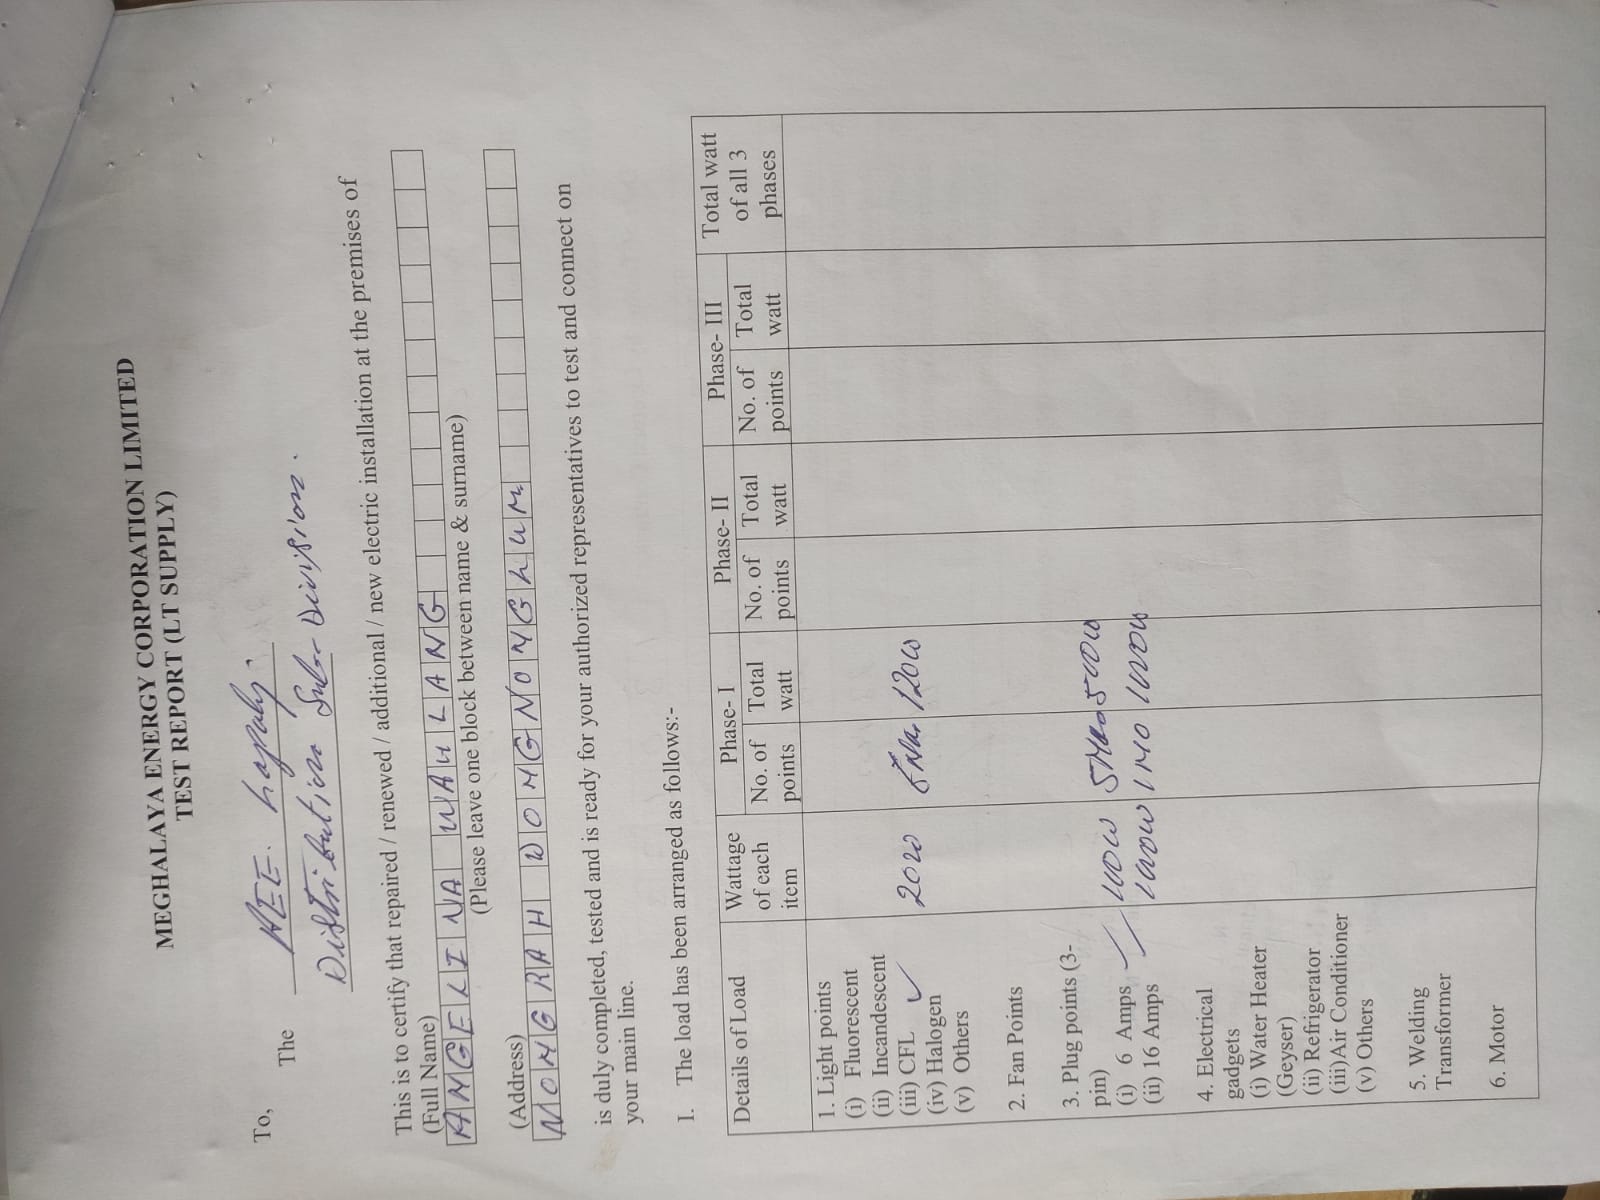 MEGHALAYA ENERGY CORPORATION LIMITED
TEST REPORT (LT SUPPLY)
To,
The AEE.
Distribution Sub-Division.
This is to certify that repaired / renewed / additional / new electric installation at the premises of
(Full Name)
ANGELINA WAHLANG
(Please leave one block between name & surname)
(Address)
NONGRAH DONGNONGLUM
is duly completed, tested and is ready for your authorized representatives to test and connect on
your main line.
I. The load has been arranged as follows:-
Details of Load
Wattage of each item
Phase- I
Phase- II
Phase- III
Total watt of all 3 phases
No. of points
Total watt
No. of points
Total watt
No. of points
Total watt
1. Light points
(i) Fluorescent
(ii) Incandescent
(iii) CFL ✓ 20W 120W
(iv) Halogen
(v) Others
2. Fan Points
3. Plug points (3-
pin)
(i) 6 Amps 100W 500W
(ii) 16 Amps 1000W 1 NO 1000W
4. Electrical
gadgets
(i) Water Heater
(Geyser)
(ii) Refrigerator
(iii) Air Conditioner
(v) Others
5. Welding
Transformer
6. Motor